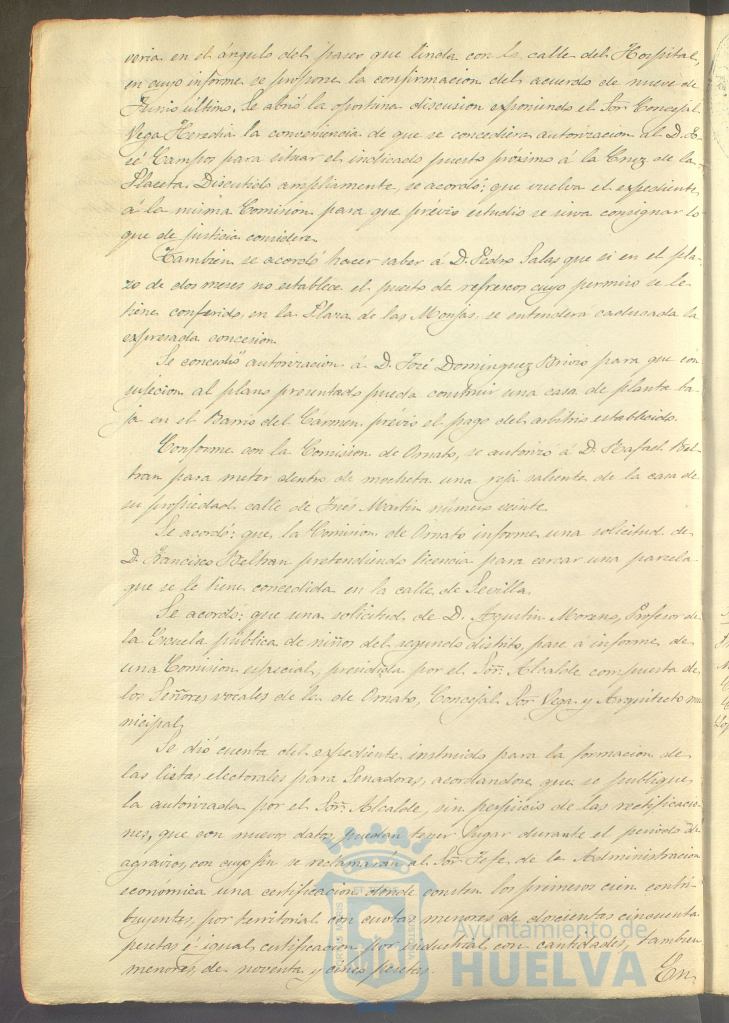 veria en el ángulo del paseo que linda con la calle del Hospital,
en cuyo informe se propone la confirmacion del acuerdo de nueve de
Junio último. Se abrió la oportuna discusion exponiendo el Sor. Concejal
Vega Heredia la conveniencia de que se concediera autorizacion al D. Jo-
sé Campos para situar el indicado puesto próximo á la Cruz de la
Placeta. Discutido ampliamente, se acordó: que vuelva el expediente
á la misma Comision para que prévio estudio se sirva consignar lo
que de justicia considere.
Tambien se acordó hacer saber á D. Pedro Salas que si en el pla-
zo de dos meses no establece el puesto de refrescos cuyo permiso se le
tiene conferido, en la Plaza de las Monjas, se entenderá caducada la
expresada concesion.
Se concedió autorizacion á D. José Dominguez Brioso para que con
sujecion al plano presentado pueda construir una casa de planta ba-
ja en el Barrio del Cármen, prévio el pago del arbitrio establecido.
Conforme con la Comision de Ornato, se autorizó á D. Rafael Bel-
tran para meter dentro de mocheta una reja saliente de la casa de
su propiedad calle de Inés Martin número veinte.
Se acordó: que la Comision de Ornato informe una solicitud de
D. Francisco Beltran pretendiendo licencia para cercar una parcela
que se le tiene concedida en la calle de Sevilla.
Se acordó: que una solicitud de D. Agustin Moreno, Profesor de
la Escuela pública de niños del segundo distrito, pase á informe de
una Comision especial, presidida por el Sor. Alcalde compuesta de
los Señores vocales de la de Ornato, Concejal Sor. Vega y Arquitecto mu
nicipal.
Se dió cuenta del expediente instruido para la formacion de
las listas electorales para Senadores, acordandose que se publique
la autorizada por el Sor. Alcalde, sin perjuicio de las rectificacio-
nes, que con nuevos datos puedan tener lugar durante el periodo de
agravios, con cuyo fin se reclamarán al Sor. Jefe de la Administracion
economica una certificacion donde consten los primeros cien contri-
buyentes, por territorial con cuotas menores de doscientas cincuenta
pesetas é igual certificacion por industrial con cantidades, tambien
menores, de noventa y cinco pesetas.
En
Ayuntamiento de
HUELVA